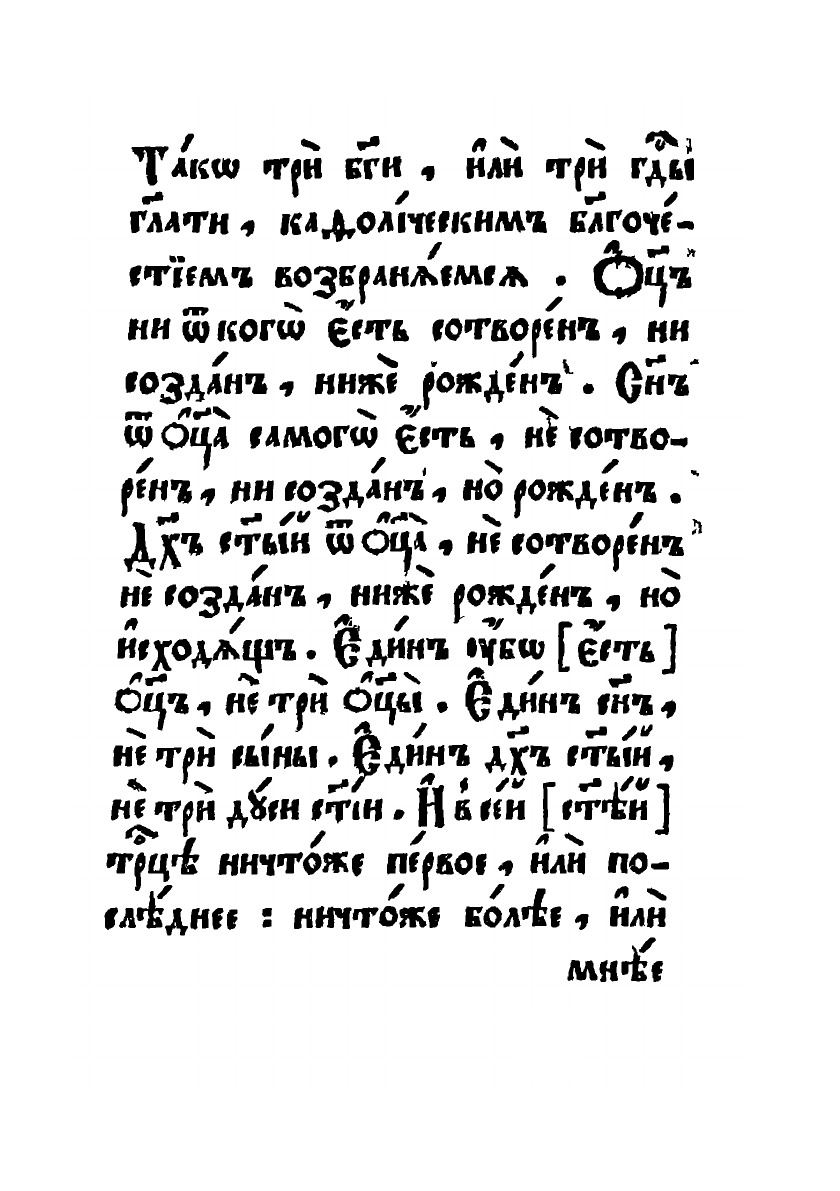 Та́кѡ трѝ бг҃и , и҆лѝ трѝ гдⷭ҇ы̀
гл҃ати , каѳолі́ческимъ бл҃гоче́-
стїемъ возбранѧ́емсѧ . Ѻ҆ц҃ъ
ни ѿ когѡ̀ є҆́сть сотворе́нъ , ни
созда́нъ , нижѐ рожде́нъ . Сн҃ъ
ѿ ѻ҆ц҃а̀ самогѡ̀ є҆́сть , нѐ сотво-
ре́нъ , ни созда́нъ , но̀ рожде́нъ .
Дх҃ъ ст҃ы́й ѿ ѻ҆ц҃а̀ , нѐ сотворе́нъ
нѐ созда́нъ , нижѐ рожде́нъ , но̀
и҆сходѧ́щъ . Є҆ди́нъ ᲂу҆́бѡ [є҆́сть]
ѻ҆ц҃ъ , нѐ трѝ ѻ҆ц҃ы̀ . Є҆ди́нъ сн҃ъ ,
нѐ трѝ сы́ны . Є҆ди́нъ дх҃ъ ст҃ы́й ,
нѐ трѝ дꙋ́си ст҃і́и . И҆ в̾ се́й [ст҃ѣ́й]
трⷪ҇цѣ ничто́же пе́рвое , и҆лѝ по-
слѣ́днее : ничто́же бо́лѣе , и҆лѝ
мнѣ́е